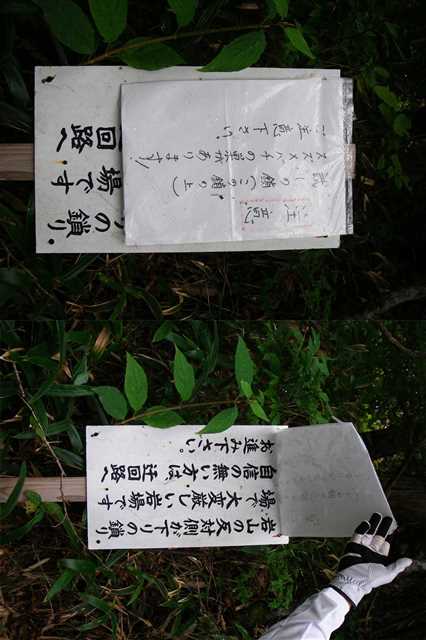 注意!
試しの鎖(この鎖り上)
スズメバチの巣があります!
ご注意下さい。
りの鎖り
場です
回路へ
岩山反対側が下りの鎖り
場で大変厳しい岩場です
自信の無い方は、迂回路へ
お進み下さい。